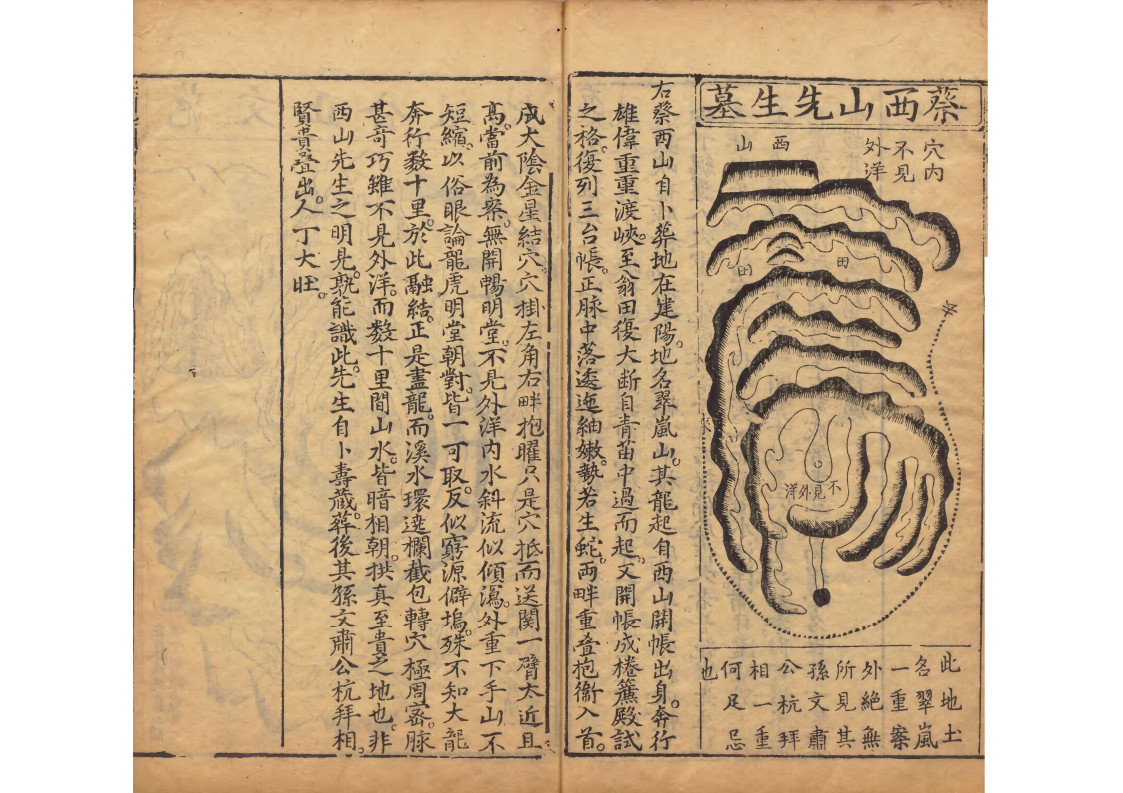 蔡西山先生墓
穴内
不見
外洋
西山
田
田
不見外洋
此地土
名翠嵐
一重案
外絶無
所見其
孫文肅
公杭拜
相一重
何足忌
也
右蔡西山自卜葬地在建陽。地名翠嵐山。其龍起自西山開帳出身。奔行
雄偉重重渡峽。至翁田復大断自青苗中過而起。又開帳成捲簾殿試
之格。復列三台帳。正脉中落逶迤細嫩。勢若生蛇。両畔重叠抱衛入首。
成大陰金星結穴。穴掛左角右畔抱曜只是穴抵而送関一臂太近且
高。當前為案。無開暢明堂。不見外洋内水斜流似傾瀉。外重下手山不
短縮。以俗眼論龍虎明堂朝對。皆一可取。反似窮源僻塢。殊不知大龍
奔行数十里。於此融結。正是盡龍。而溪水環遶欄截包轉穴極周密。脉
甚奇巧雖不見外洋。而数十里間山水。皆暗相朝。拱真至貴之地也。非
西山先生之明見。孰能識此。先生自卜壽藏。葬後其孫文肅公杭拜相。
賢貴叠出。人丁大旺。